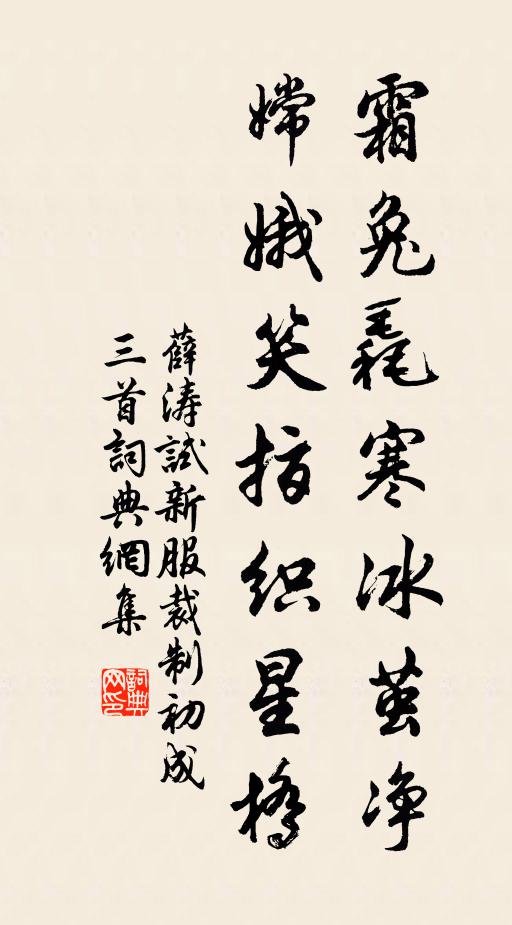 霜兔毳寒冰茧净
嫦娥笑指织星橋
薛涛試新服裁制初成
三首詞典網集
詞典网印